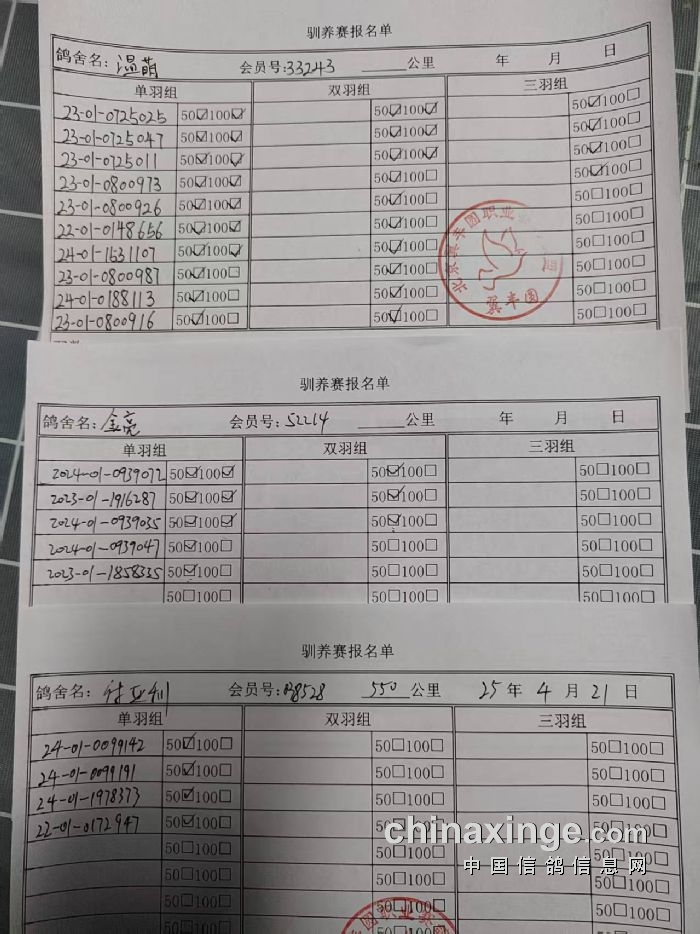 驯养赛报名单
鸽舍名: 温萌 会员号:33243 公里 年 月 日
单羽组 双羽组 三羽组
23-01-0725025 50☑100☑ 50☑100☑ 50☑100☐
23-01-0725047 50☑100☑ 50☑100☑ 50☑100☐
23-01-0725011 50☑100☑ 50☑100☑ 50☑100☐
23-01-0800973 50☑100☑ 50☑100☐ 50☑100☐
23-01-0800926 50☑100☑ 50☑100☐ 50☐100☐
22-01-0148656 50☑100☑ 50☑100☐ 50☐100☐
24-01-1531107 50☑100☑ 50☑100☐ 50☐100☐
23-01-0800987 50☑100☐ 50☑100☐ 50☐100☐
24-01-0188113 50☑100☐ 50☑100☐ 50☐100☐
23-01-0800916 50☑100☐ 50☑100☐ 50☐100☐
冀丰园
驯养赛报名单
鸽舍名: 金亮 会员号: 52214 公里 年 月 日
单羽组 双羽组 三羽组
2024-01-0939072 50☑100☑ 50☑100☐ 50☐100☐
2023-01-1916287 50☑100☑ 50☑100☐ 50☐100☐
2024-01-0939035 50☑100☑ 50☑100☐ 50☐100☐
2024-01-0939047 50☑100☐ 50☐100☐ 50☐100☐
2023-01-1858335 50☑100☐ 50☐100☐ 50☐100☐
50☐100☐ 50☐100☐ 50☐100☐
驯养赛报名单
鸽舍名: 会员号: 550 公里 25 年 4 月 21 日
单羽组 双羽组 三羽组
24-01-0099142 50☑100☐ 50☐100☐ 50☐100☐
24-01-0099191 50☑100☐ 50☐100☐ 50☐100☐
24-01-1978373 50☑100☐ 50☐100☐ 50☐100☐
22-01-0172947 50☑100☐ 50☐100☐ 50☐100☐
50☐100☐ 50☐100☐ 50☐100☐
50☐100☐ 50☐100☐ 50☐100☐
50☐100☐ 50☐100☐ 50☐100☐
50☐100☐ 50☐100☐ 50☐100☐
chinaxinge.com
中国信鸽信息网